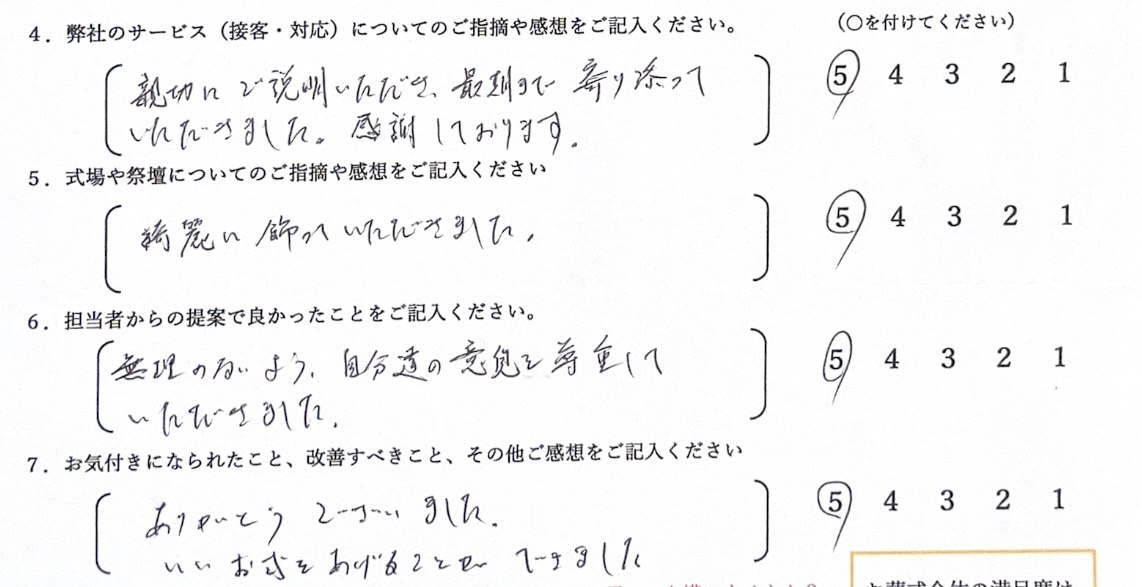 4．弊社のサービス（接客・対応）についてのご指摘や感想をご記入ください。 （○を付けてください）
親切にご説明いただき、最期まで寄り添って 5 4 3 2 1
いただきました。感謝しております。
5．式場や祭壇についてのご指摘や感想をご記入ください
綺麗に飾っていただきました。 5 4 3 2 1
6．担当者からの提案で良かったことをご記入ください。
無理のないよう、自分達の意見を尊重して 5 4 3 2 1
いただきました。
7．お気付きになられたこと、改善すべきこと、その他ご感想をご記入ください
ありがとうございました。 5 4 3 2 1
いいお式をあげることができました
お葬式全体の満足度は